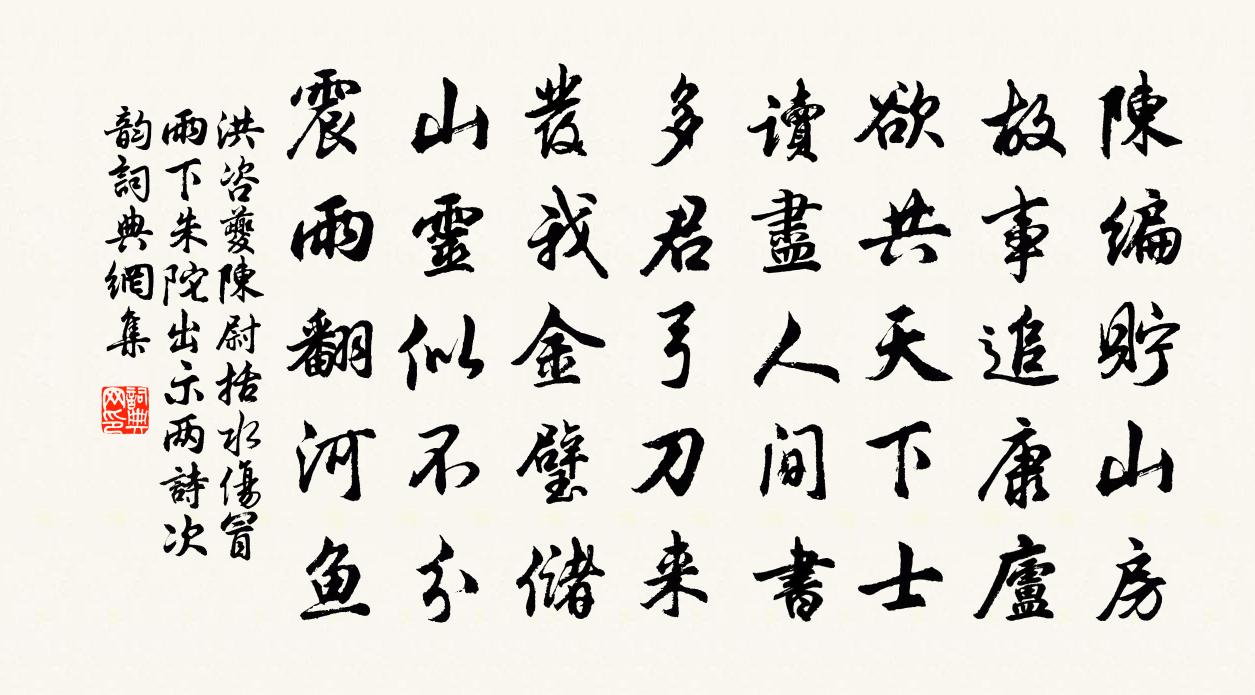 陳編貯山房
故事追康廬
欲共天下士
讀盡人間書
多君弓刀来
發我金璧儲
山靈似不分
震雨翻河魚
洪咨夔陳尉括水傷冒
雨下朱陀出示两詩次
韵詞典網集